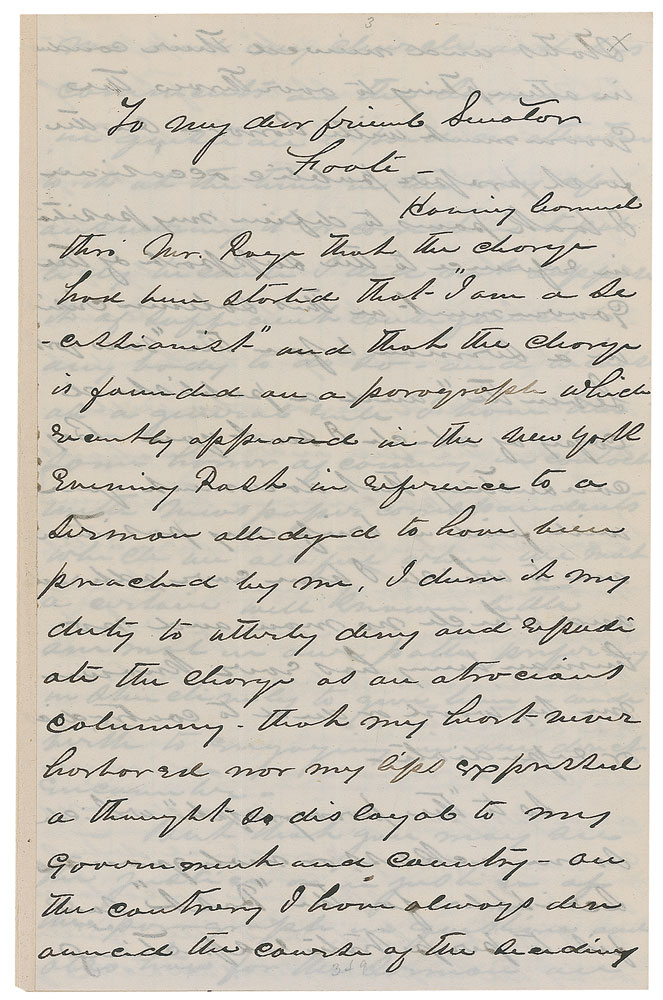 3
X
To my dear friend Senator
Foote -
Having learned
thro' Mr. Page that the charge
had been started that "I am a se
-cessionist" and that the charge
is founded on a paragraph which
recently appeared in the New York
Evening Post in reference to a
sermon alledged to have been
preached by me, I deem it my
duty to utterly deny and repudi
ate the charge as an atrocious
calumny - that my heart never
harbored nor my lips expressed
a thought so disloyal to my
Government and country - on
the contrary I have always den
ounced the course of the seceding
349